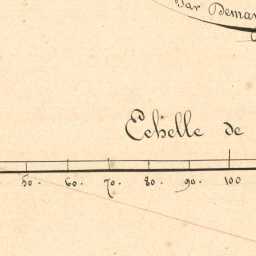 Par Demar
Echelle de
50. 60. 70. 80. 90. 100